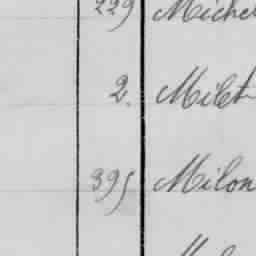 229 Michel
2. Milet
395 Milon